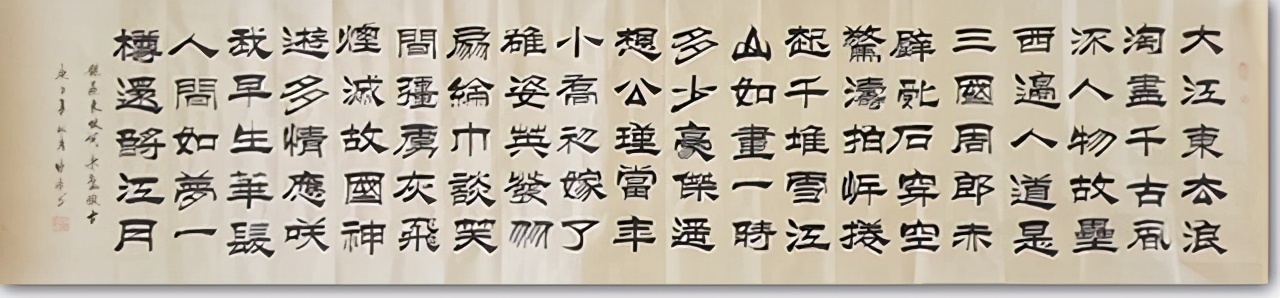 大江東去浪
淘盡千古風
流人物故壘
西邊人道是
三國周郎赤
壁亂石穿空
驚濤拍岸捲
起千堆雪江
山如畫一時
多少豪傑遥
想公瑾當年
小喬初嫁了
雄姿英發羽
扇綸巾談笑
間彊虜灰飛
煙滅故國神
遊多情應咲
我早生華髮
人間如夢一
樽還酹江月
錄蘇東坡詞赤壁懷古
庚子年